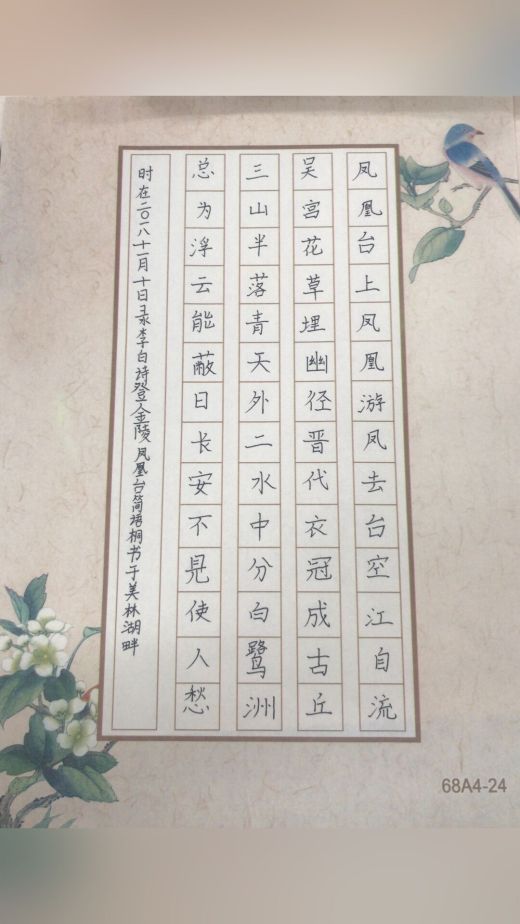 凤凰台上凤凰游凤去台空江自流
吴宫花草埋幽径晋代衣冠成古丘
三山半落青天外二水中分白鹭洲
总为浮云能蔽日长安不见使人愁
时在二〇一八十一月十日录李白诗登金陵凤凰台简梧桐书于美林湖畔
68A4-24